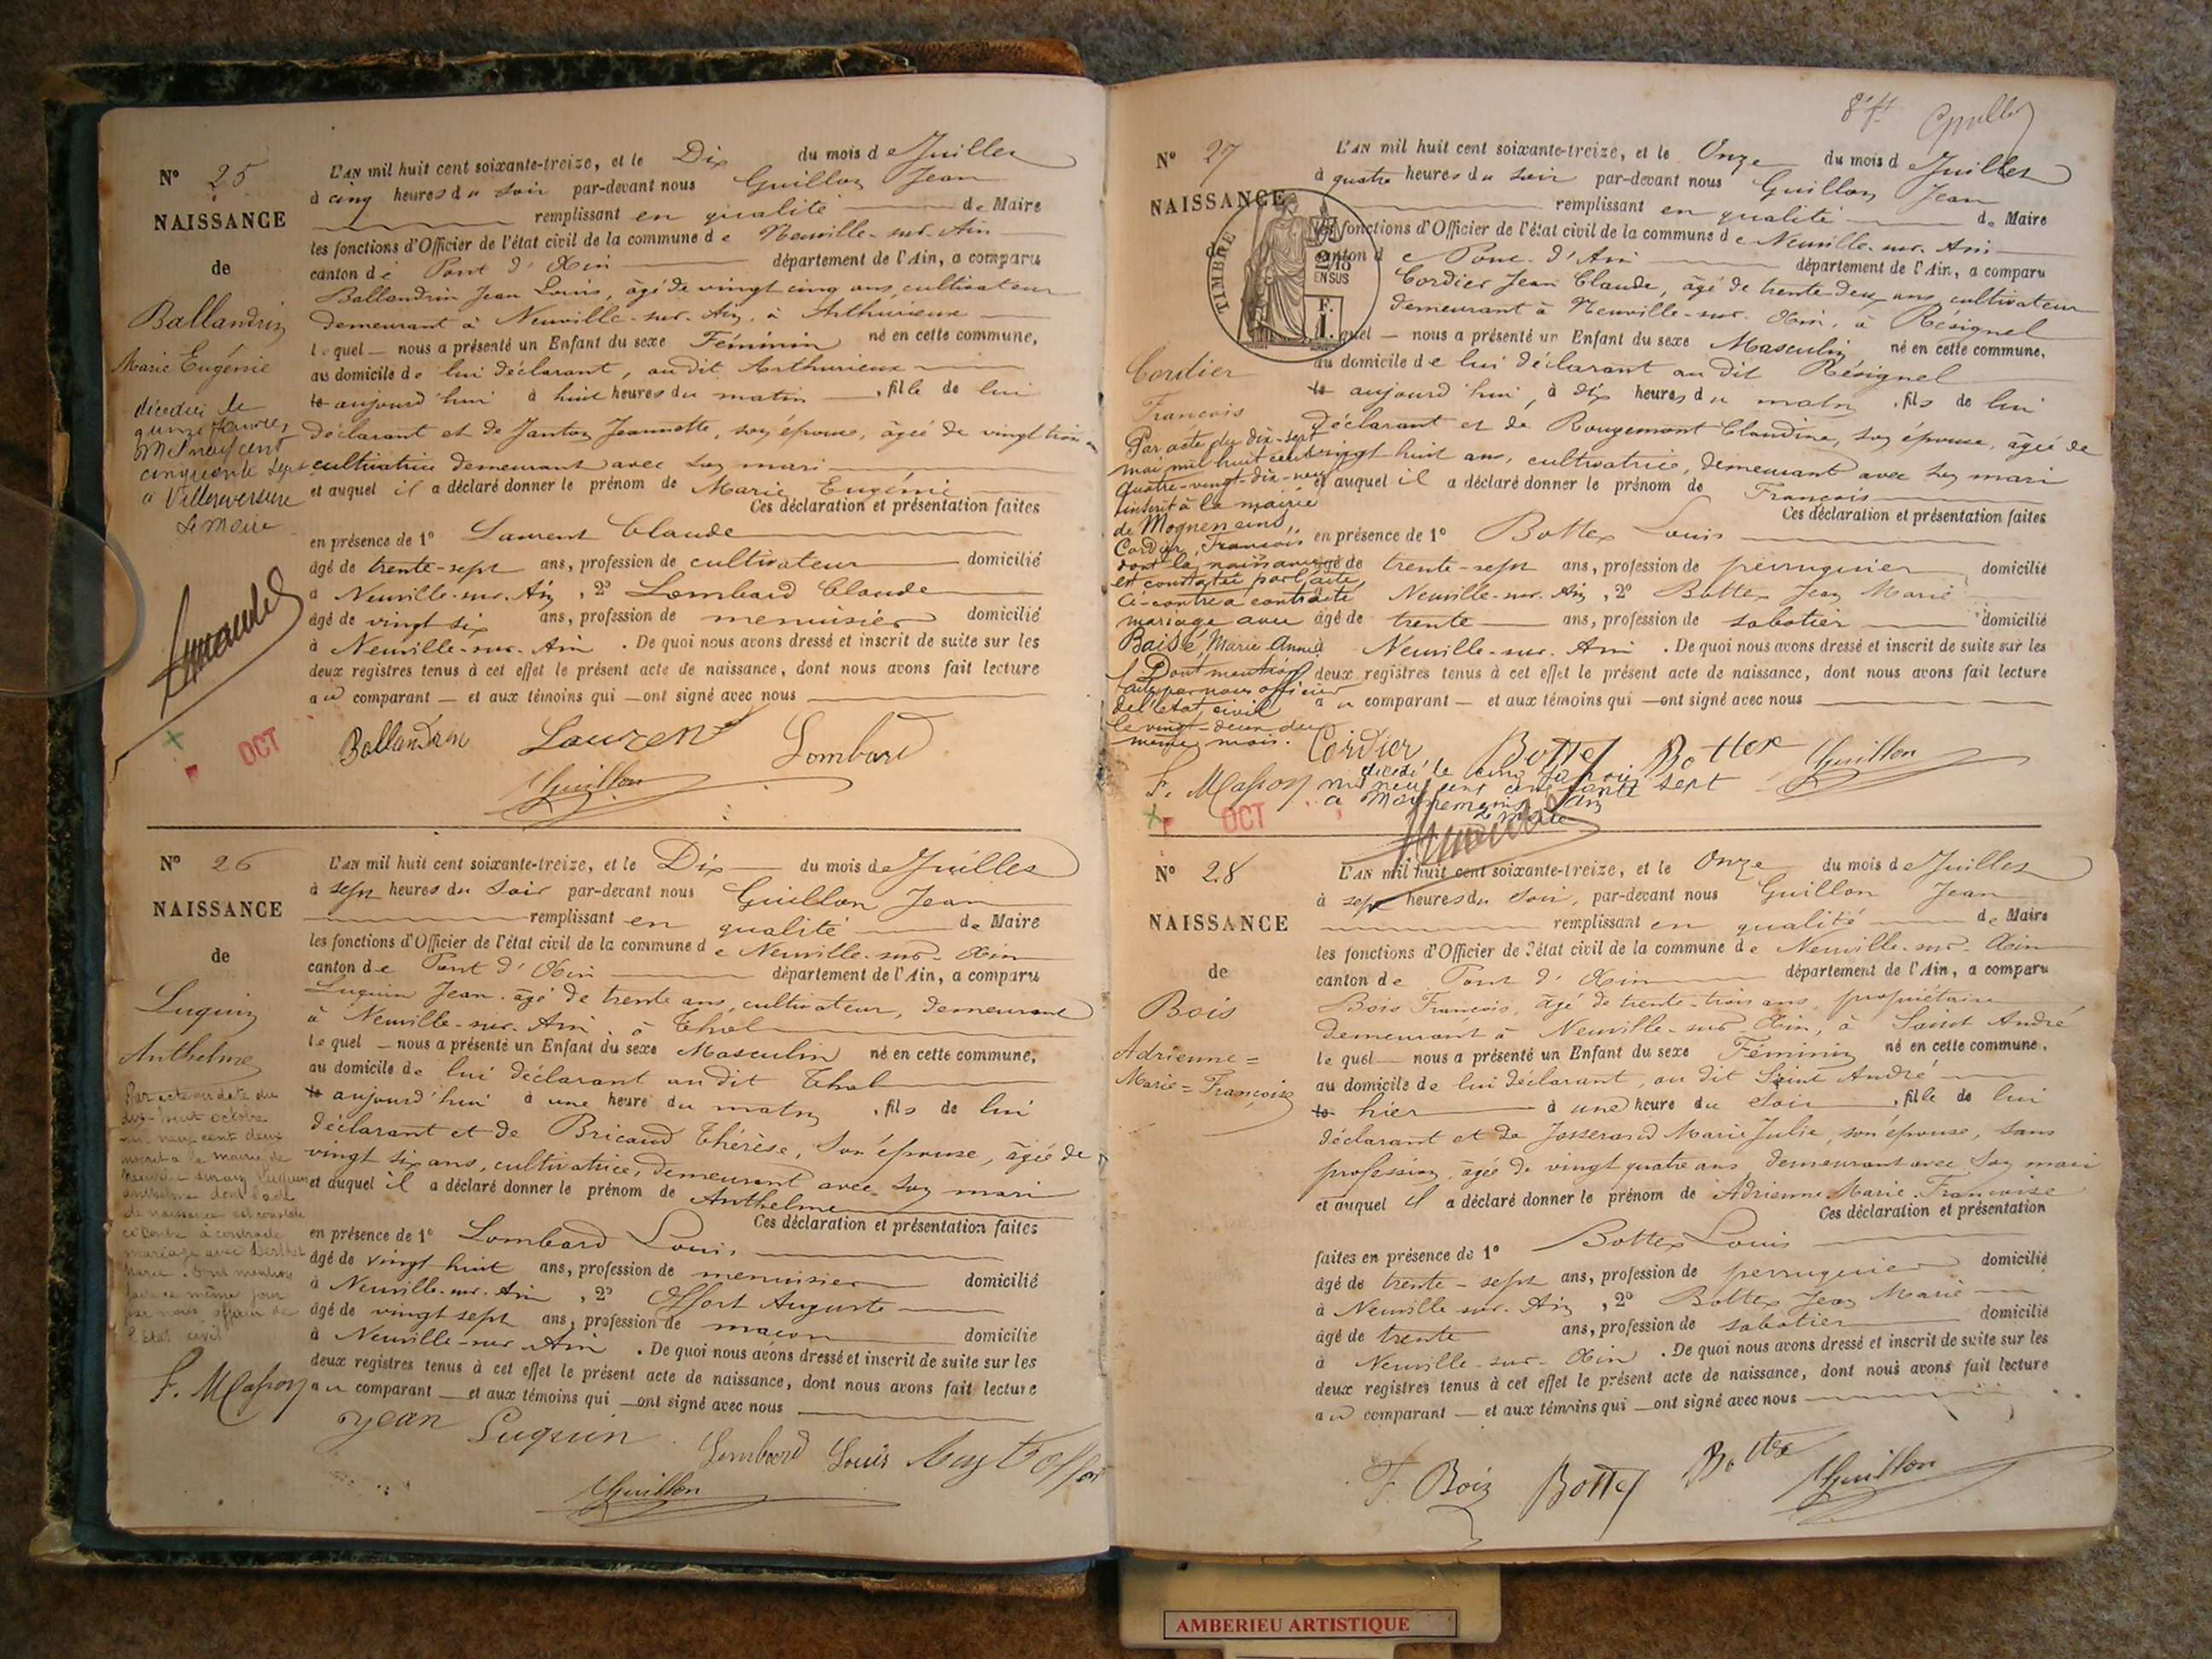 Nº 25
NAISSANCE
de
Ballandrin
Marie Eugénie
décédée le
quinze février
mil neuf cent
cinquante sept
a Villereversure
Le Maire
L'AN mil huit cent soixante-treize, et le Dix du mois de Juillet
à cinq heures du soir par-devant nous Guillon Jean
remplissant en qualité de Maire
les fonctions d'Officier de l'état civil de la commune de Neuville-sur-Ain
canton de Pont d'Ain département de l'Ain, a comparu
Ballandrin Jean Louis, âgé de vingt cinq ans, cultivateur
demeurant à Neuville-sur-Ain, à Arthurieux
lequel nous a présenté un Enfant du sexe Féminin né en cette commune,
au domicile de lui déclarant, au dit Arthurieux
le aujourd'hui à huit heures du matin, fille de lui
déclarant et de Janton Jeannette, son épouse, âgée de vingt trois ans
cultivatrice demeurant avec son mari
et auquel il a déclaré donner le prénom de Marie Eugénie
Ces déclaration et présentation faites
en présence de 1º Laurent Claude
âgé de trente-sept ans, profession de cultivateur domicilié
à Neuville-sur-Ain, 2º Lombard Claude
âgé de vingt six ans, profession de menuisier domicilié
à Neuville-sur-Ain. De quoi nous avons dressé et inscrit de suite sur les
deux registres tenus à cet effet le présent acte de naissance, dont nous avons fait lecture
au comparant et aux témoins qui ont signé avec nous
OCT
Ballandrin Laurent Lombard
Guillon
Nº 26
NAISSANCE
de
Luquin
Anthelme
Par acte en date du
dix-huit octobre
mil neuf cent deux
inscrit à la mairie de
Neuville sur Ain Luquin
Anthelme dont l'acte
de naissance est constaté
ci contre à contracté
mariage avec Berthet
Marie. Dont mention
faite ce même jour
par nous officier de
l'Etat civil
F. Mason
L'AN mil huit cent soixante-treize, et le Dix du mois de Juillet
à sept heures du soir par-devant nous Guillon Jean
remplissant en qualité de Maire
les fonctions d'Officier de l'état civil de la commune de Neuville-sur-Ain
canton de Pont d'Ain département de l'Ain, a comparu
Luquin Jean, âgé de trente ans, cultivateur, demeurant
à Neuville-sur-Ain, à Thol
lequel nous a présenté un Enfant du sexe Masculin né en cette commune,
au domicile de lui déclarant au dit Thol
le aujourd'hui à une heure du matin, fils de lui
déclarant et de Bricaud Thérèse, son épouse, âgée de
vingt six ans, cultivatrice, demeurant avec son mari
et auquel il a déclaré donner le prénom de Anthelme
Ces déclaration et présentation faites
en présence de 1º Lombard Louis
âgé de vingt huit ans, profession de menuisier domicilié
à Neuville-sur-Ain, 2º Offort Auguste
âgé de vingt sept ans, profession de maçon domicilié
à Neuville-sur-Ain. De quoi nous avons dressé et inscrit de suite sur les
deux registres tenus à cet effet le présent acte de naissance, dont nous avons fait lecture
au comparant et aux témoins qui ont signé avec nous
Jean Luquin Lombard Louis
Guillon
Nº 27
NAISSANCE
de
TIMBRE
2/10
EN SUS
F.
1.
Cordier
François
Par acte du dix-sept
mai mil huit cent
quatre-vingt-dix-neuf
inscrit à la mairie
de Mogneneins,
Cordier, François
dont la naissance
est constatée par l'acte
ci-contre a contracté
mariage avec
Baisé, Marie Anna
Dont mention
faite par nous officier
de l'état civil
le vingt-deux du
même mois.
F. Mason
L'AN mil huit cent soixante-treize, et le Onze du mois de Juillet
à quatre heures du soir par-devant nous Guillon Jean
remplissant en qualité de Maire
les fonctions d'Officier de l'état civil de la commune de Neuville-sur-Ain
canton de Pont-d'Ain département de l'Ain, a comparu
Cordier Jean Claude, âgé de trente deux ans, cultivateur
demeurant à Neuville-sur-Ain, à Résignel
lequel nous a présenté un Enfant du sexe Masculin né en cette commune,
au domicile de lui déclarant au dit Résignel
le aujourd'hui, à dix heures du matin, fils de lui
déclarant et de Rougemont Claudine, son épouse, âgée de
vingt huit ans, cultivatrice, demeurant avec son mari
et auquel il a déclaré donner le prénom de François
Ces déclaration et présentation faites
en présence de 1º Bottex Louis
âgé de trente-sept ans, profession de perruquier domicilié
à Neuville-sur-Ain, 2º Bottex Jean Marie
âgé de trente ans, profession de sabotier domicilié
à Neuville-sur-Ain. De quoi nous avons dressé et inscrit de suite sur les
deux registres tenus à cet effet le présent acte de naissance, dont nous avons fait lecture
au comparant et aux témoins qui ont signé avec nous
Cordier Bottex Bottex Guillon
décédé le cinq
mil neuf cent cinquante sept
a Mogneneins Ain
Le Maire
OCT
Nº 28
NAISSANCE
de
Bois
Adrienne=
Marie=Françoise
L'AN mil huit cent soixante-treize, et le Onze du mois de Juillet
à sept heures du soir, par-devant nous Guillon Jean
remplissant en qualité de Maire
les fonctions d'Officier de l'état civil de la commune de Neuville-sur-Ain
canton de Pont d'Ain département de l'Ain, a comparu
Bois François, âgé de trente-trois ans, propriétaire
demeurant à Neuville-sur-Ain, à Saint André
lequel nous a présenté un Enfant du sexe Féminin né en cette commune,
au domicile de lui déclarant, au dit Saint André
le hier à une heure du soir, fille de lui
déclarant et de Josserand Marie Julie, son épouse, sans
profession, âgée de vingt quatre ans demeurant avec son mari
et auquel il a déclaré donner le prénom de Adrienne Marie Françoise
Ces déclaration et présentation
faites en présence de 1º Bottex Louis
âgé de trente-sept ans, profession de perruquier domicilié
à Neuville-sur-Ain, 2º Bottex Jean Marie
âgé de trente ans, profession de sabotier domicilié
à Neuville-sur-Ain. De quoi nous avons dressé et inscrit de suite sur les
deux registres tenus à cet effet le présent acte de naissance, dont nous avons fait lecture
au comparant et aux témoins qui ont signé avec nous
F. Bois Bottex Bottex Guillon
AMBERIEU ARTISTIQUE